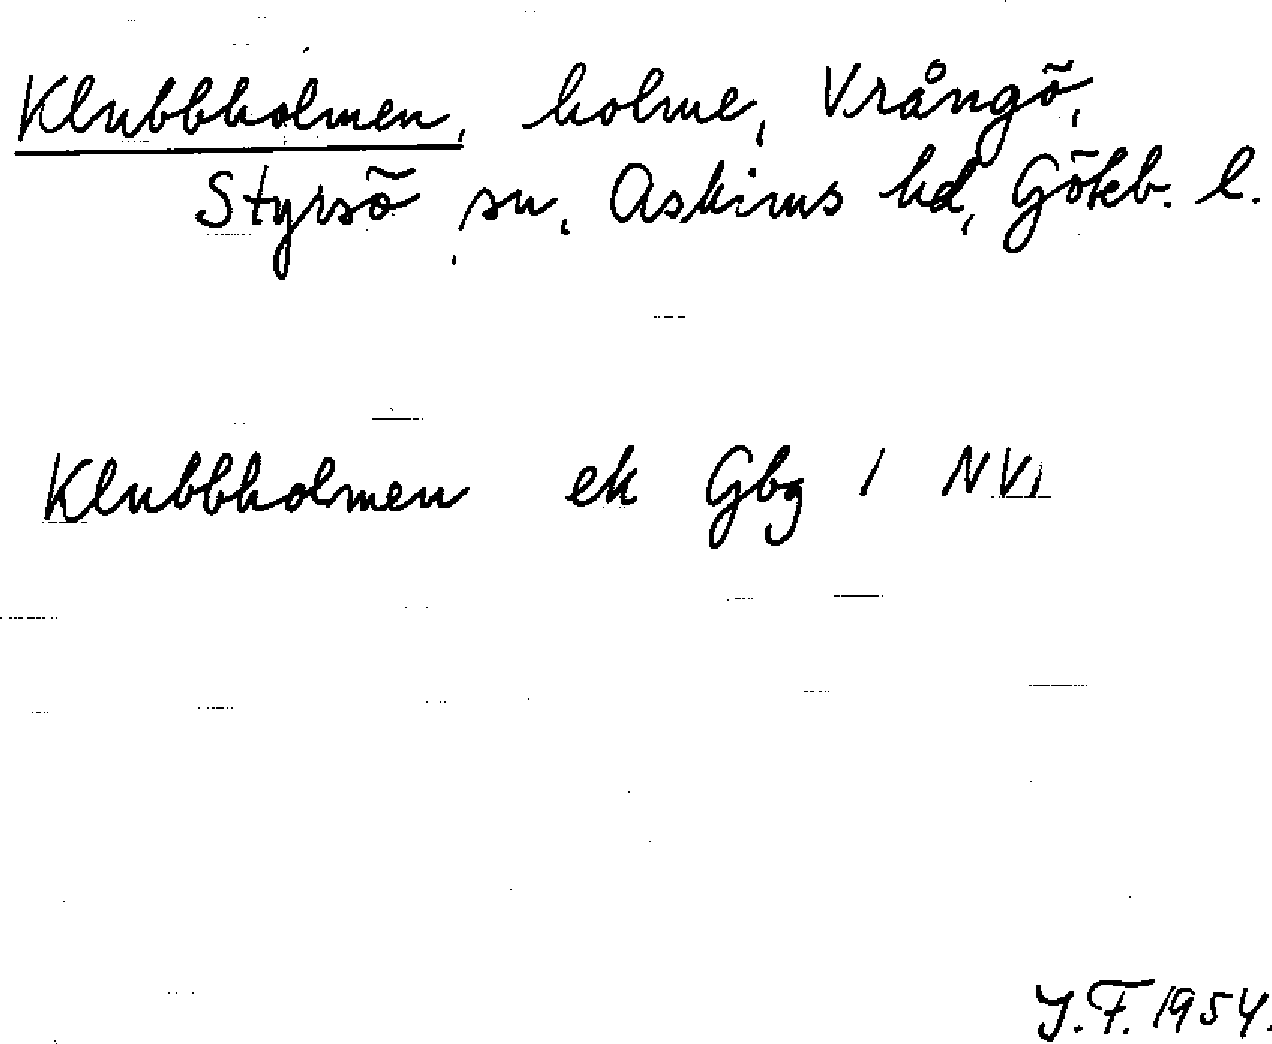 Klubbholmen, holme, Vrångö,
Styrsö sn, Askims hd, Gökb. l.
Klubbholmen ek Gbg 1 NV,
J.F. 1954.